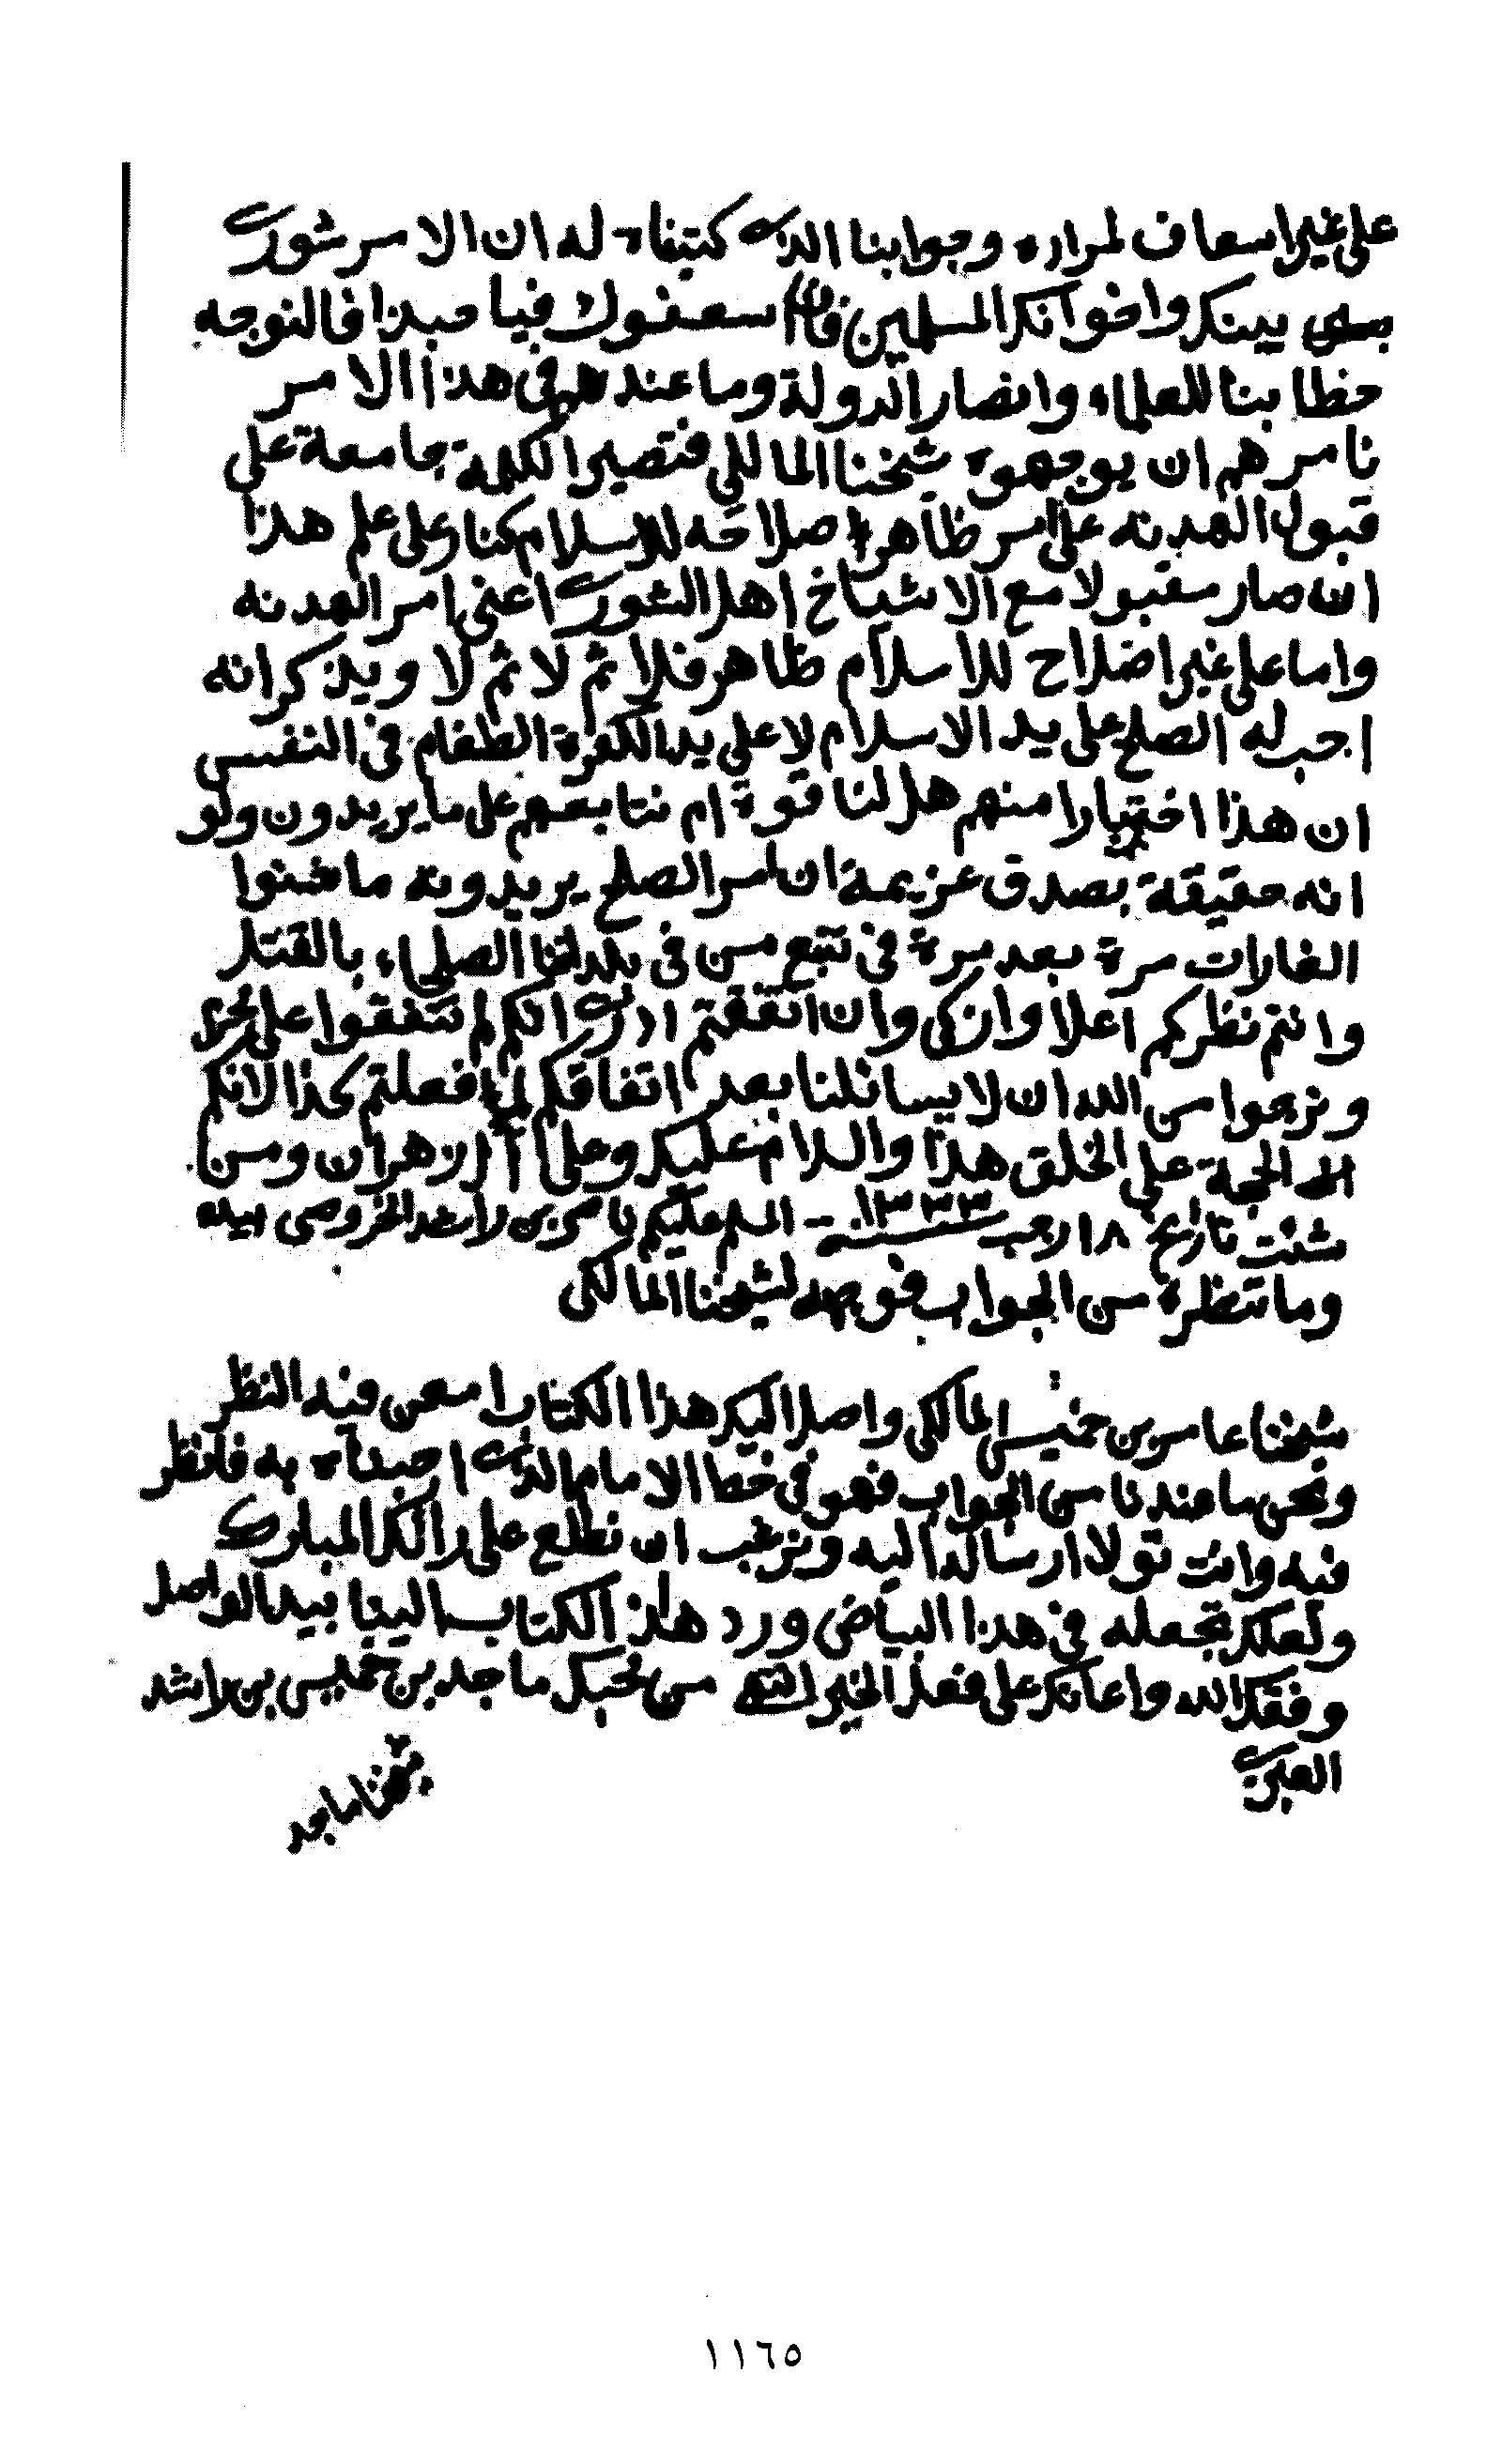 على غير اسعاف لمراده وجوابنا الذي كتبناه له ان الامر شورى
بينك واخوانك المسلمين فان اسعفوك فيا حبذا فالتوجه
خطابنا للعلماء وانصار الدولة وما عندهم في هذا الامر
نامرهم ان يوجهوه شيخنا المالكي فتصير الكلمة جامعة على
قبول الهدنه على امر ظاهر صلاحه للاسلام كنا وعلى علم هذا
ان صار مقبولا مع الاشياخ اهل الشورى اعني امر الهدنه
واما على غير اصلاح للاسلام ظاهر فلا ثم لا ثم لا ويذكر انه
احب له الصلح على يد الاسلام لا على يد الكفرة الطغام في النفس
ان هذا اختبارا منهم هل لنا قوة ام نتابعهم على ما يريدون ولو
انه حقيقة بصدق عزيمة ان امر الصلح يريدونه ما شنوا
الغارات مرة بعد مرة في تتبع من في بلداننا الصلحاء بالقتل
وانتم نظركم اعلا وازكى وان اتفقتم ادرى انكم لم تتفقوا على
ونرجوا من الله ان لا يسائلنا بعد اتفاقكم لم فعلتم كذا لانكم
الحجة على الخلق هذا والسلام عليك وعلى الازهران ومن
شئت تاريخ ١٨ رجب سنة ١٣٣٣ – المسلم عليكم ناصر بن راشد الخروصي بيده
وما تنتظره من الجواب فوجهه لشيخنا المالكي
شيخنا عامر بن خميس المالكي واصل اليك هذا الكتاب امعن فيه النظر
ونحن ما عندنا من الجواب فهو في خط الامام الذي اجبناه به فانظر
فيه وانت تولا ارساله اليه ونرغب ان نطلع على رائك المبارك
ولعلك تجعله في هذا البياض ورد هذا الكتاب الينا بيد الواصل
وفقك الله واعانك على فعل الخير من محبك ماجد بن خميس بن راشد
العبري
شيخنا ماجد
١١٦٥